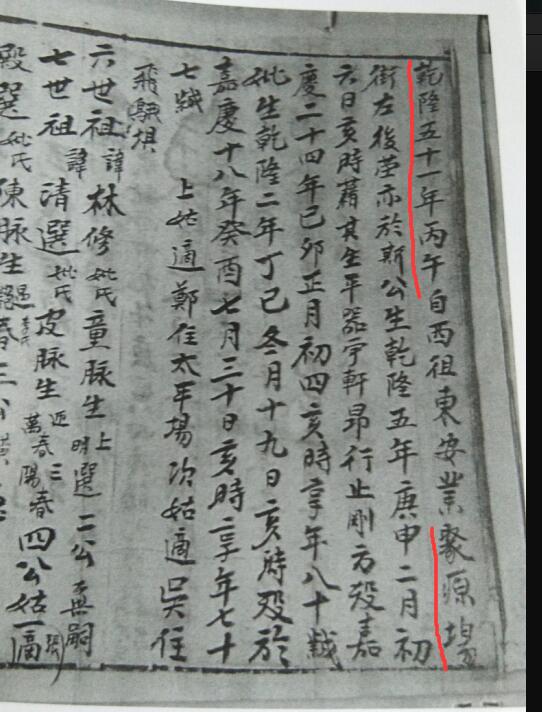 乾隆五十一年丙午自西徂東安業聚源場
街左後塋亦於斯公生乾隆五年庚申二月初
六日亥時藉其生平器宇軒昂行止剛方殁嘉
慶二十四年己卯正月初四亥時享年八十歲
妣生乾隆二年丁巳冬月十九日亥時殁於
嘉慶十八年癸酉七月三十日亥時享年七十
七歲 上姑適鄭住太平場次姑適吳住
飛騎垻
六世祖諱林修妣氏童脉生上明選二公無嗣
七世祖諱清選妣氏皮脉生近三萬春陽春四公姑一適
殿選妣氏陳脉生